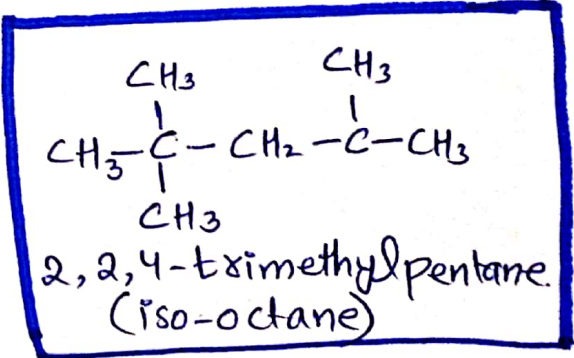 CH3 CH3
CH3-C-CH2-C-CH3
CH3
2,2,4-trimethylpentane.
(iso-octane)